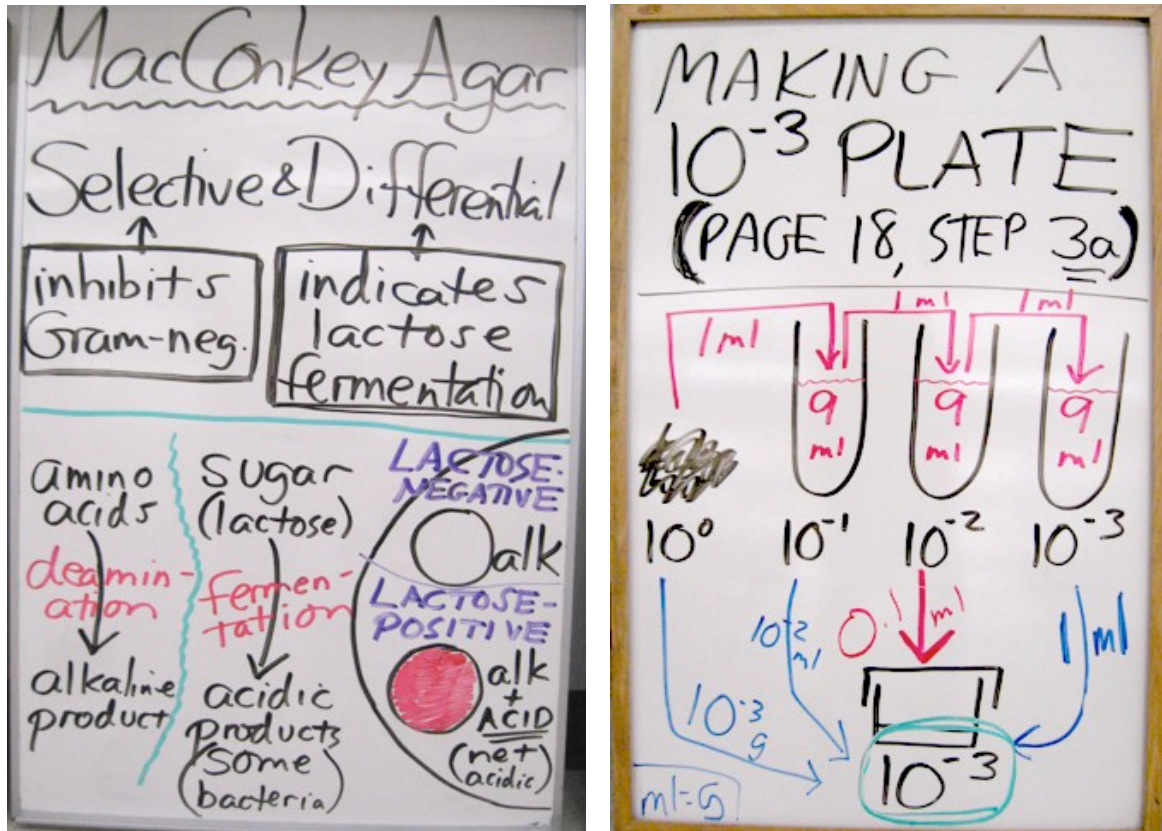 MacConkey Agar
Selective & Differential
inhibits
Gram-neg.
indicates
lactose
fermentation
amino
acids
deamin-
ation
alkaline
product
sugar
(lactose)
fermen-
tation
acidic
products
(some
bacteria)
LACTOSE-
NEGATIVE
alk
LACTOSE-
POSITIVE
alk
+
ACID
(net
acidic)
MAKING A
10⁻³ PLATE
(PAGE 18, STEP 3a)
1 ml
1 ml
1 ml
9
ml
9
ml
9
ml
10⁰
10⁻¹
10⁻²
10⁻³
10⁻³
g
10⁻²
ml
0.1 ml
1 ml
10⁻³
ml=g